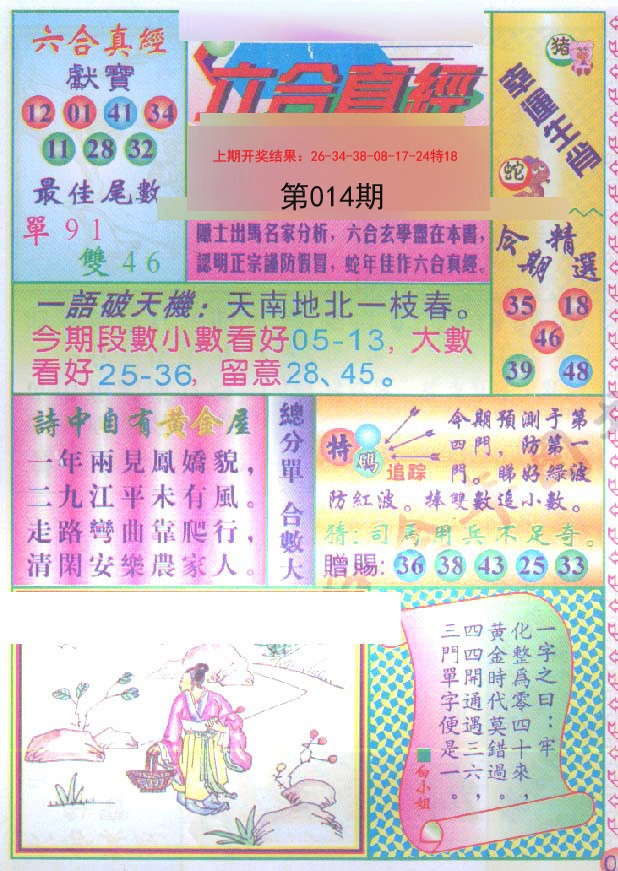 六合真經
獻寶
12 01 41 34
11 28 32
最佳尾數
單 91
雙 46
六合真經
上期开奖结果: 26-34-38-08-17-24特18
第014期
隱士出馬名家分析，六合玄學盡在本書，
認明正宗謹防假冒，蛇年佳作六合真經。
豬
蛇
今期精選
35 18
46
39 48
一語破天機：天南地北一枝春。
今期段數小數看好05-13，大數
看好25-36，留意28、45。
詩中自有黃金屋
一年兩見鳳嬌貌，
二九江平未有風。
走路彎曲靠爬行，
清閑安樂農家人。
總分單 合數大
特碼
追踪
今期預測于第
四門，防第一
門。睇好綠波
防紅波。捧雙數追小數。
猜：司馬用兵不足奇。
贈賜: 36 38 43 25 33
一字之曰：牢
化整爲零四十來，
黃金時代莫錯過。
四四開通遇三六，
三門單字便是一。
白小姐